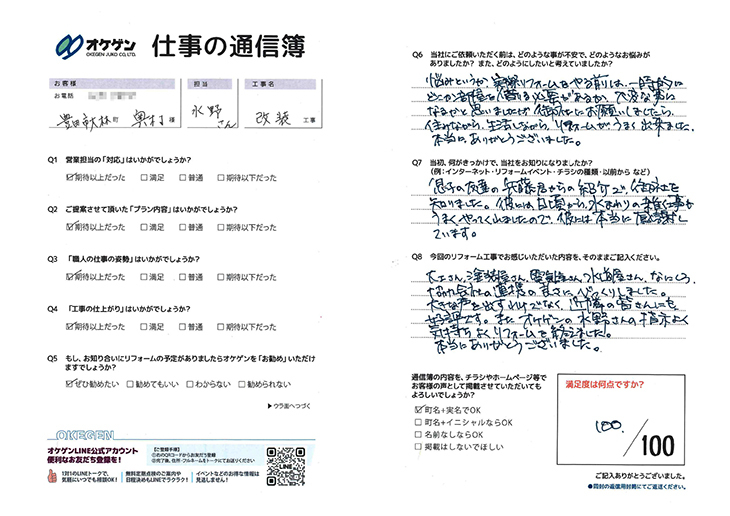 オケゲン
OKEGEN JUKO CO.,LTD.
仕事の通信簿
お客様
お電話
豊田市林町 奥村 様
担当
水野さん
工事名
改装 工事
Q1 営業担当の「対応」はいかがでしょうか?
☑期待以上だった □満足 □普通 □期待以下だった
Q2 ご提案させて頂いた「プラン内容」はいかがでしょうか?
☑期待以上だった □満足 □普通 □期待以下だった
Q3 「職人の仕事の姿勢」はいかがでしょうか?
☑期待以上だった □満足 □普通 □期待以下だった
Q4 「工事の仕上がり」はいかがでしょうか?
☑期待以上だった □満足 □普通 □期待以下だった
Q5 もし、お知り合いにリフォームの予定がありましたらオケゲンを「お勧め」いただけ
ますでしょうか?
☑ぜひ勧めたい □勧めてもいい □わからない □勧められない
▶ウラ面へつづく
OKEGEN
オケゲンLINE公式アカウント
便利なお友だち登録を!
【ご登録手順】
①右のQRコードからお友だち登録
②完了後、住所・フルネームをトークにてお送りください
1対1のLINEトークで、
気軽にいつでも相談OK!
無料定期点検のご案内や
日程決めもLINEでラクラク!
イベントなどのお得な情報は
見逃しなし!
LINE
Q6 当社にご依頼いただく前は、どのような事が不安で、どのようなお悩みが
ありましたか? また、どのようにしたいと考えていましたか?
悩みというか実際リフォームをやる前は、一時的に
どこか部屋を借りる必要があるか、大変な事に
なるかと思いましたが御社にお願いしましたら、
住みながら、生活しながら、リフォームが、うまく出来ました。
本当にありがとうございました。
Q7 当初、何がきっかけで、当社をお知りになりましたか?
(例:インターネット・リフォームイベント・チラシの種類・以前から など)
息子の友達の 佐藤君からの紹介で、御社を
知りました。彼には日頃から、水まわりの雑仕事を
うまくやってくれましたので、彼には本当に感謝し
ています。
Q8 今回のリフォーム工事でお感じいただいた内容を、そのままご記入ください。
大工さん、塗装屋さん、電気屋さん、水道屋さん、なにしろ、
協力会社の連携の良さに、びっくりしました。
大きな声を出すわけでなく、近隣の皆さんにも
好評です。また オケゲンの水野さんの指示よく
気持ちよくリフォームを終えました。
本当にありがとうございました。
通信簿の内容を、チラシやホームページ等で
お客様の声として掲載させていただいても
よろしいでしょうか?
☑町名+実名でOK
□町名+イニシャルならOK
□名前なしならOK
□掲載はしないでほしい
満足度は何点ですか?
100 /100
ご記入ありがとうございました。
●同封の返信用封筒にてご返送ください。